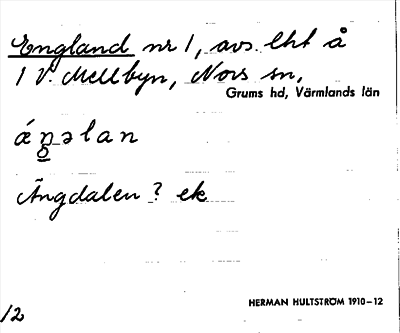 England nr 1, avs. lht å
1 V. Mellbyn, Nors sn,
Grums hd, Värmlands län
áŋəlan
Ängdalen ? ek
HERMAN HULTSTRÖM 1910-12
12